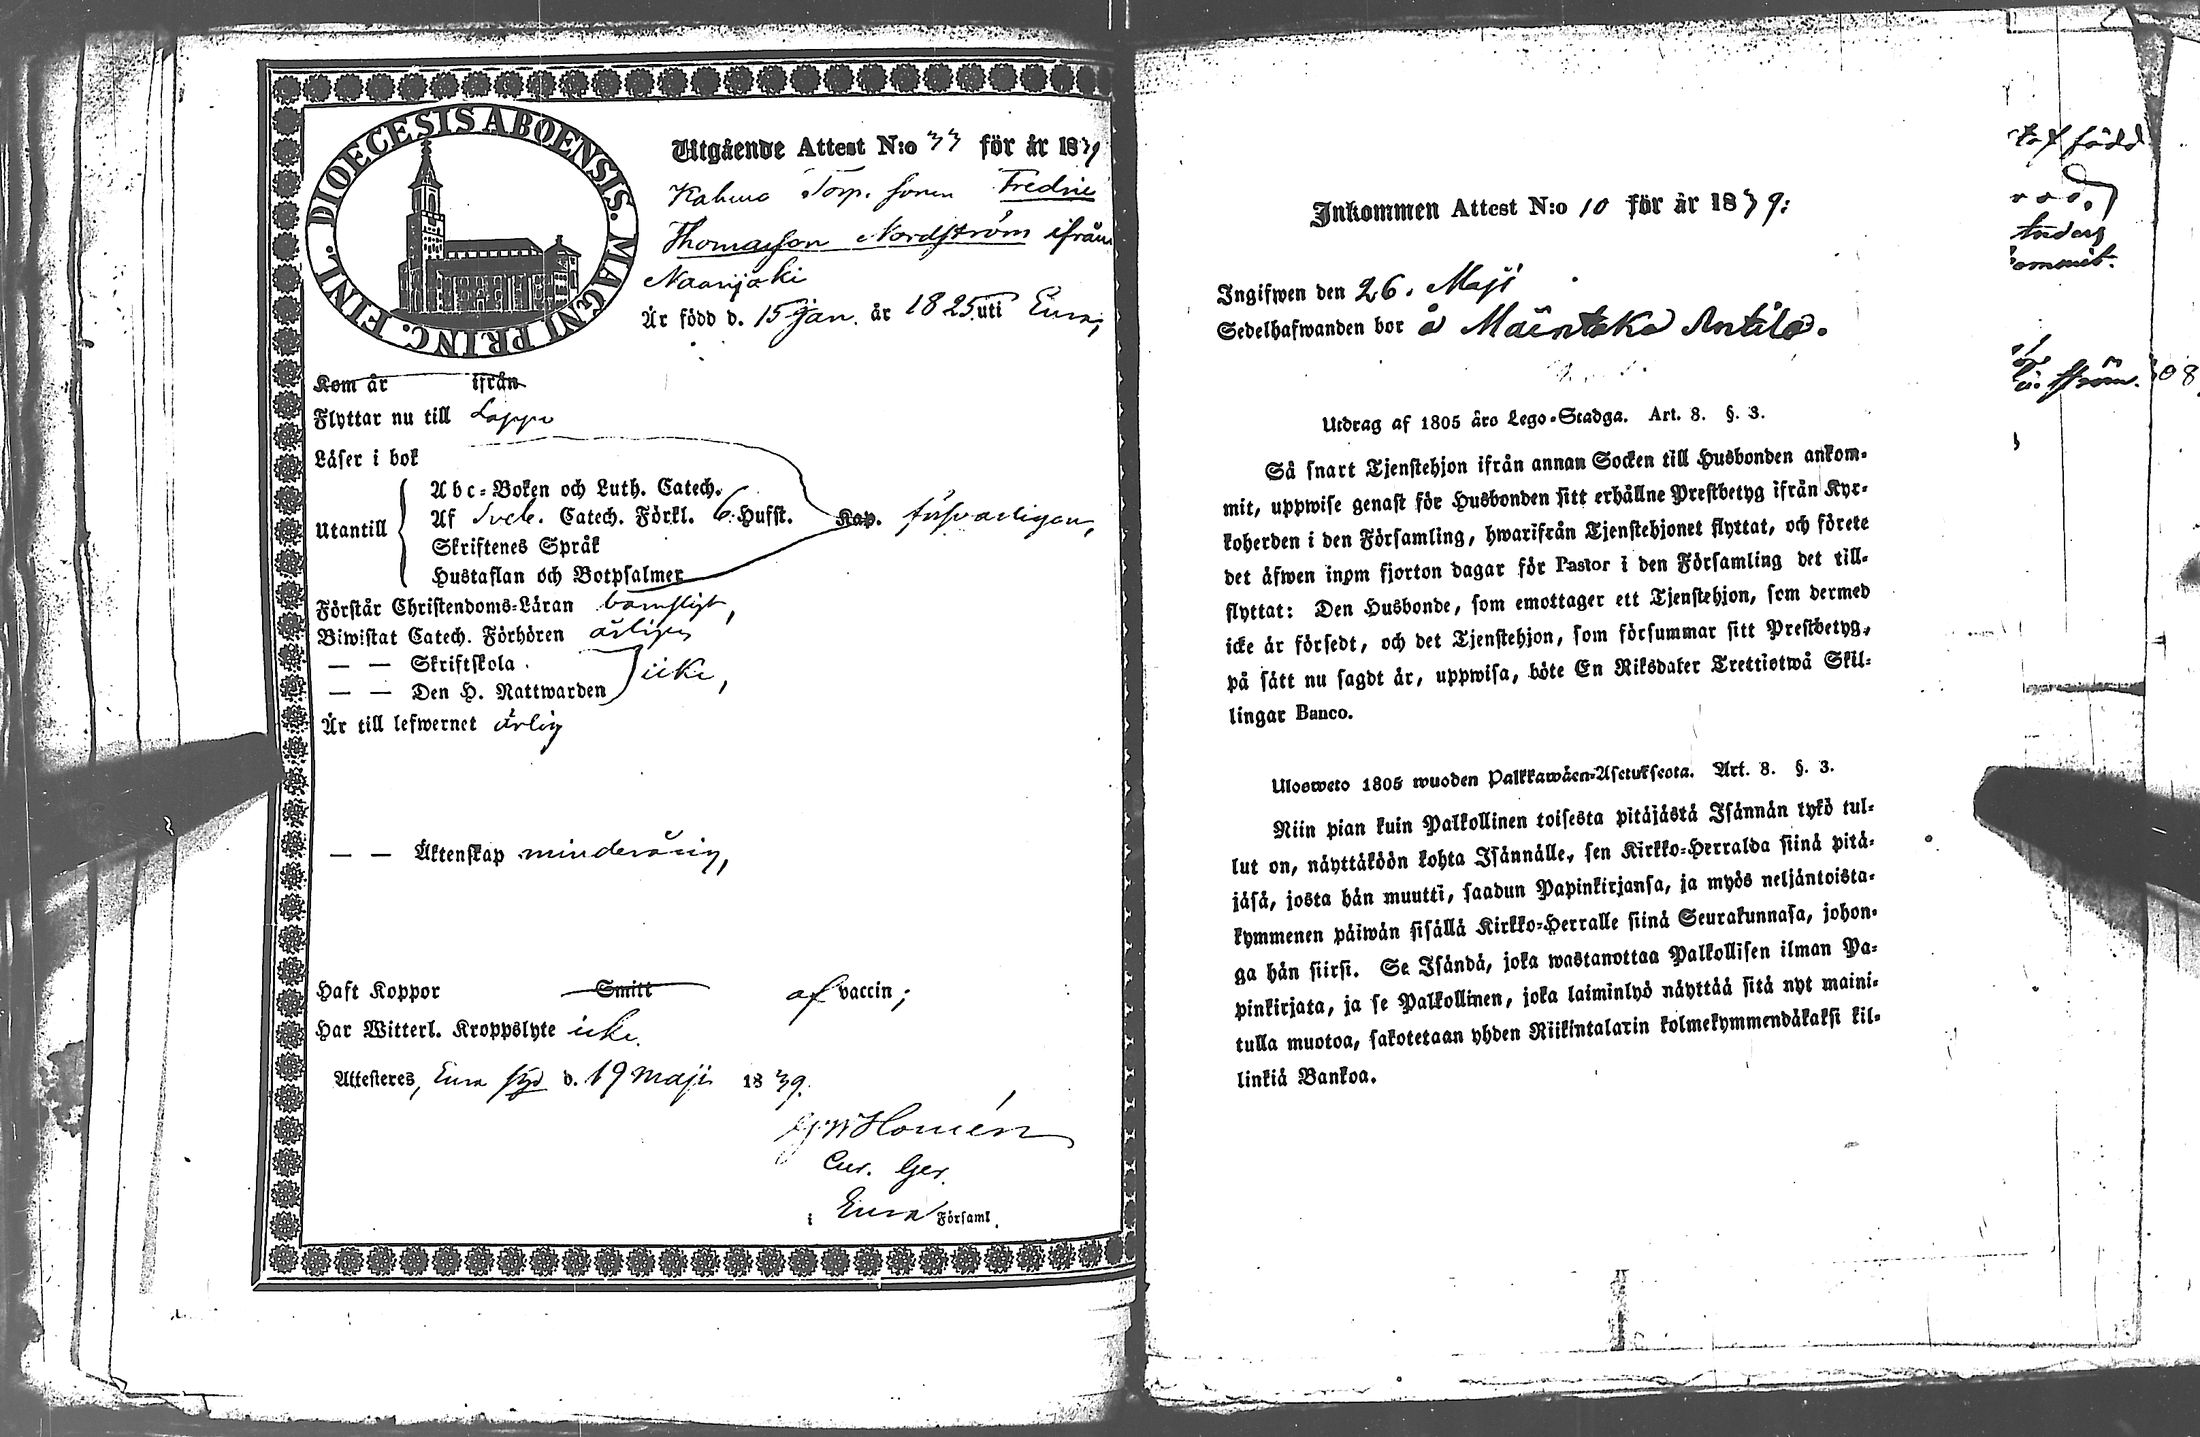 DIOECESIS ABOENSIS. MAGNI PRINC. FINL.
Utgående Attest N:o 33 för år 1839
Torp. sonen Fredric
Thomasson Nordström ifrån
Naarjoki
Är född d. 15 Jan. år 1825 uti Eura,
Kom år ifrån
Flyttar nu till Lappi
Läser i bok
Abc-Boken och Luth. Catech.
Utantill Af Sveb. Catech. Förkl. 6. Hufst. Kap. försvarligen,
Skriftenes Språk
Hustaflan och Botpsalmer
Förstår Christendoms-Läran barnsligt,
Biwistat Catech. Förhören årligen
— — Skriftskola
— — Den H. Nattwarden icke,
Är till lefwernet ärlig
— — Äktenskap minderårig,
Haft Koppor Smitt af vaccin;
Har Witterl. Kroppslyte icke.
Attesteres, Eura d. 19 Maji 1839.
Homén
Cur. Ger.
i Eura Församl.
Inkommen Attest N:o 10 för år 1839:
Ingifwen den 26. Maji
Sedelhafwanden bor å Mäentaka Antila.
Utdrag af 1805 års Lego-Stadga. Art. 8. §. 3.
Så snart Tjenstehjon ifrån annan Socken till Husbonden ankom-
mit, uppwise genast för Husbonden sitt erhållne Prestbetyg ifrån Kyr-
koherden i den Församling, hwarifrån Tjenstehjonet flyttat, och förete
det äfwen inom fjorton dagar för Pastor i den Församling det till-
flyttat: Den Husbonde, som emottager ett Tjenstehjon, som dermed
icke är försedt, och det Tjenstehjon, som försummar sitt Prestbetyg,
på sätt nu sagdt är, uppwisa, böte En Riksdaler Trettiotwå Skil-
lingar Banco.
Ulosweto 1805 wuoden Palkkawäen-Asetuksesta. Art. 8. §. 3.
Niin pian kuin Palkollinen toisesta pitäjästä Isännän tykö tul-
lut on, näyttäköön kohta Isännälle, sen Kirkko-Herralda siinä pitä-
jäsä, josta hän muutti, saadun Papinkirjansa, ja myös neljäntoista-
kymmenen päiwän sisällä Kirkko-Herralle siinä Seurakunnasa, johon-
ga hän siirsi. Se Isändä, joka wastanottaa Palkollisen ilman Pa-
pinkirjata, ja se Palkollinen, joka laiminlyö näyttää sitä nyt maini-
tulla muotoa, sakotetaan yhden Riikintalarin kolmekymmendäkaksi kil-
linkiä Bankoa.
född
Anders